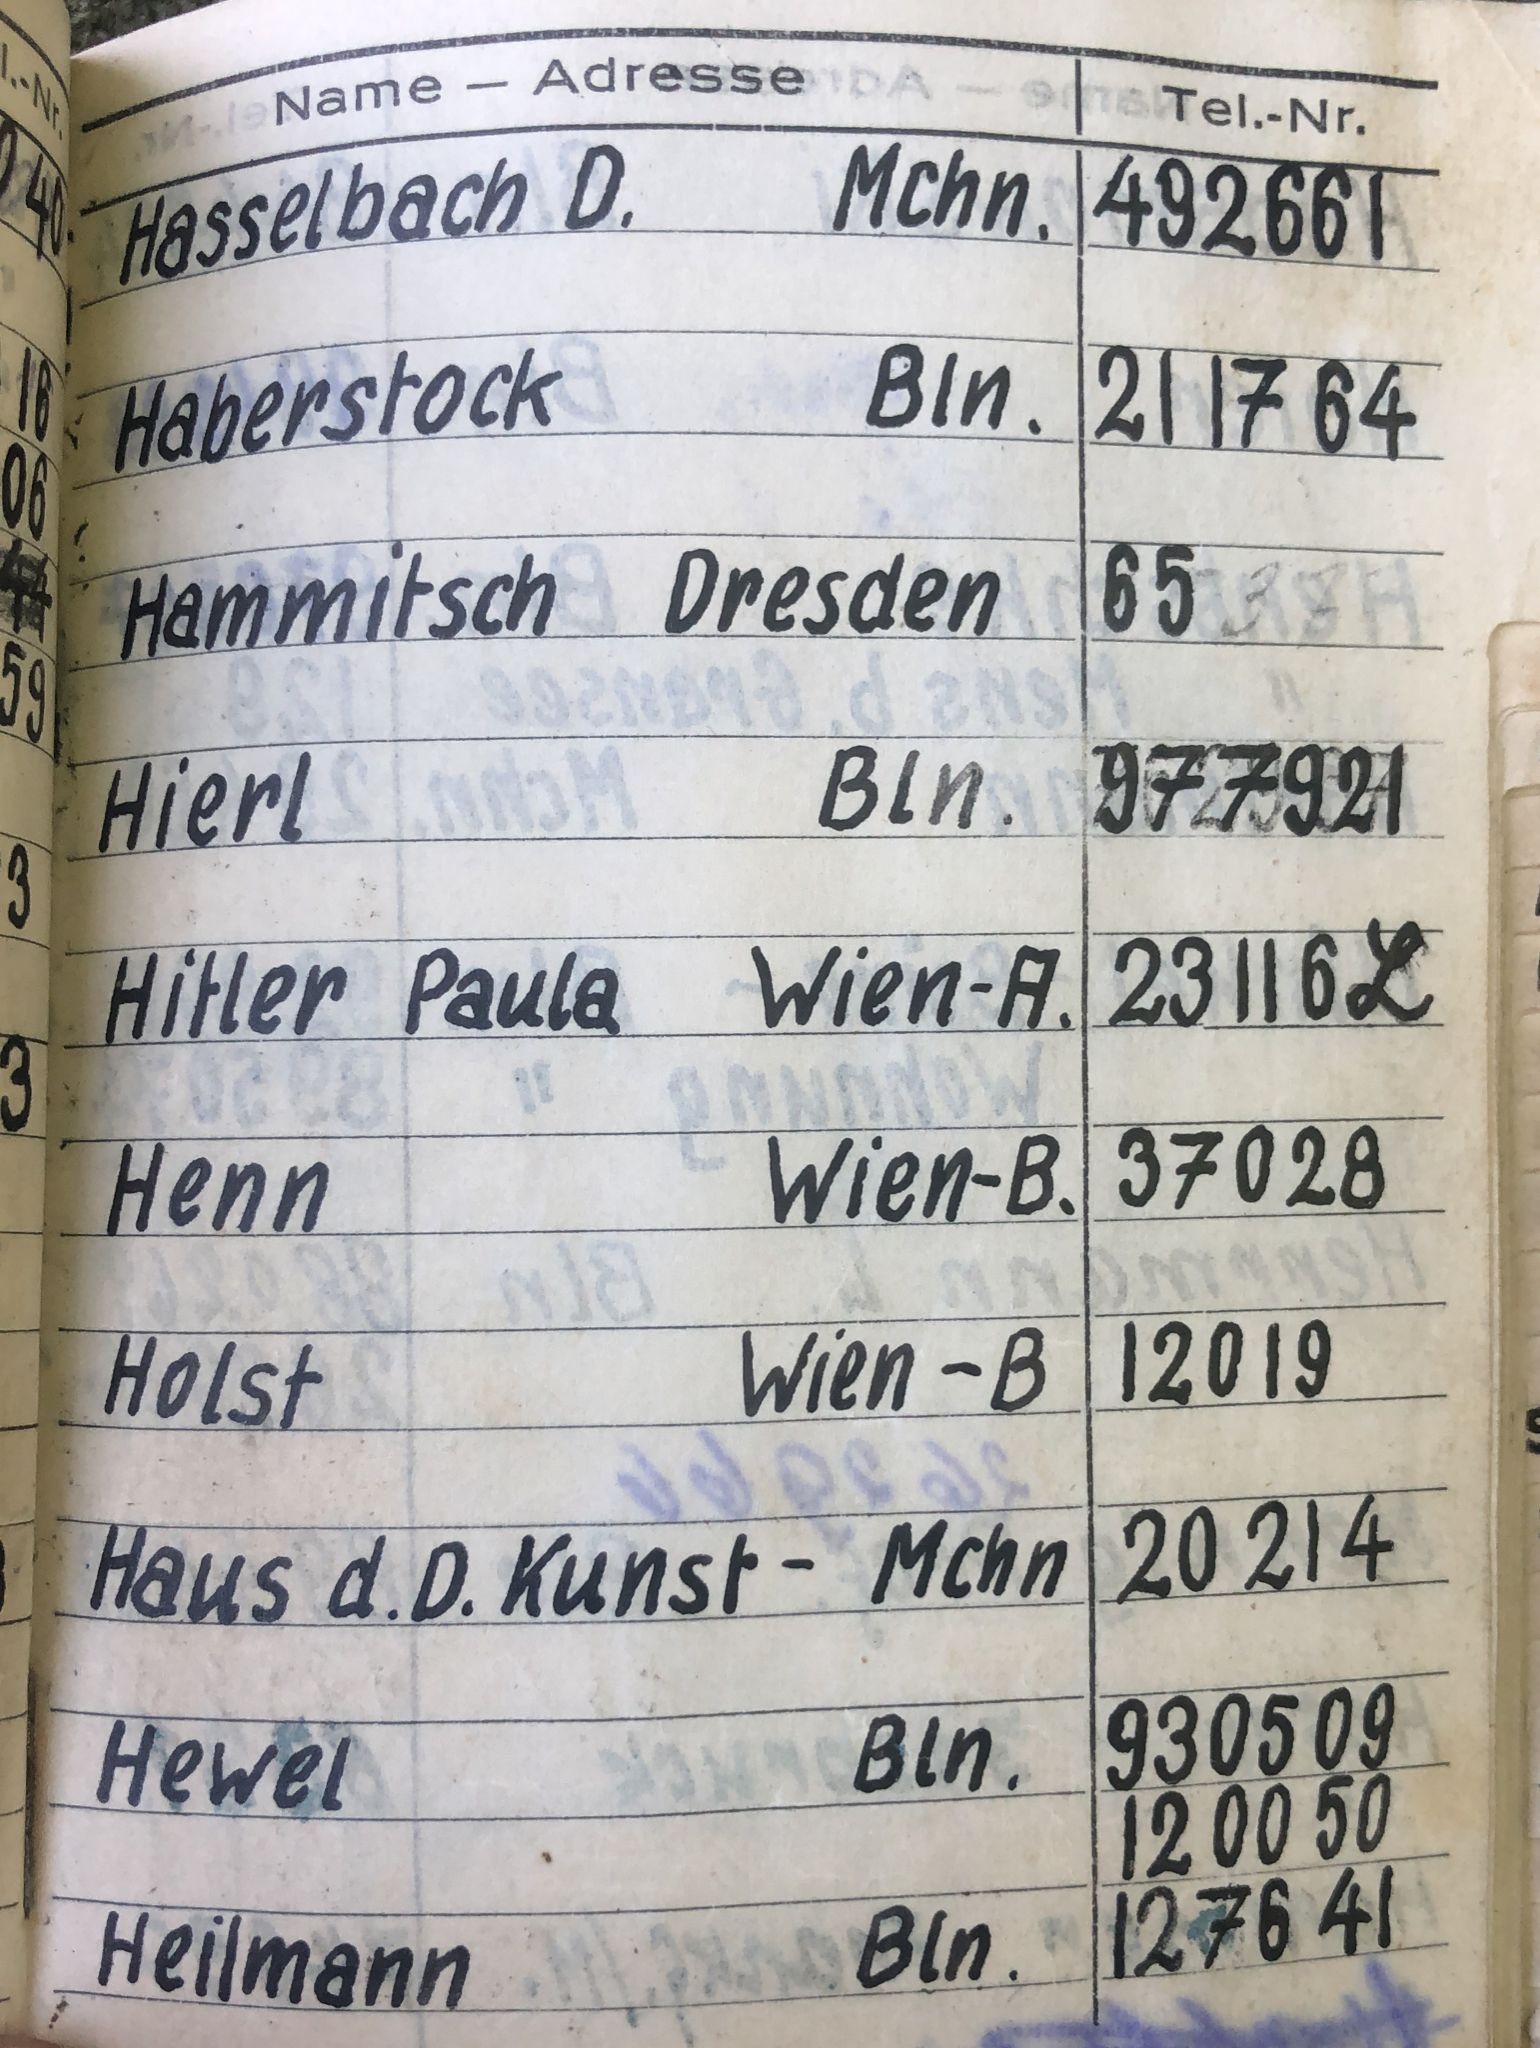 Name – Adresse Tel.-Nr.
Hasselbach D. Mchn. 492661
Haberstock Bln. 211764
Hammitsch Dresden 65
Hierl Bln. 977921
Hitler Paula Wien-A. 23116 L
Henn Wien-B. 37028
Holst Wien-B 12019
Haus d. D. Kunst - Mchn 20214
Hewel Bln. 930509
120050
Heilmann Bln. 127641